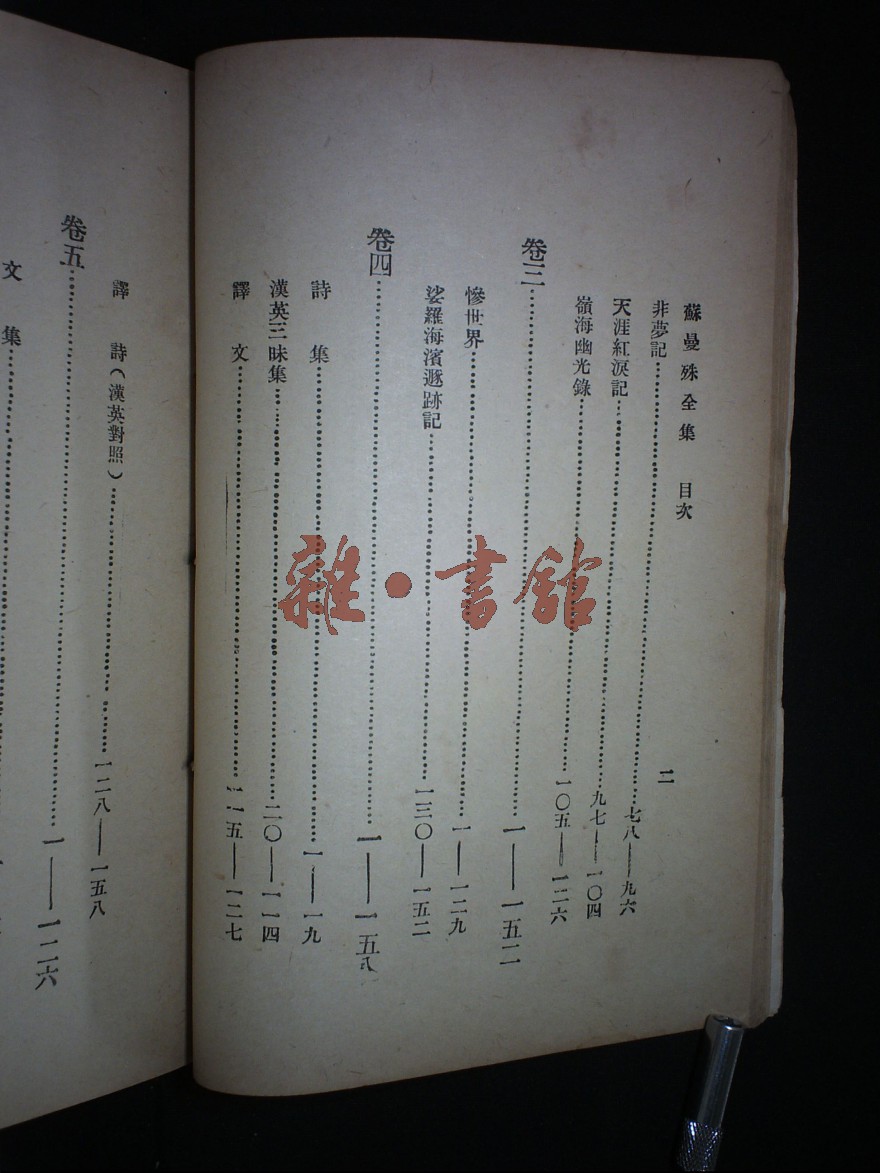 蘇曼殊全集 目次 二
非夢記 七八—九六
天涯紅淚記 九七—一〇四
嶺海幽光錄 一〇五—一二六
卷三 一—一五二
慘世界 一—一二九
娑羅海濱遯跡記 一三〇—一五二
卷四 一—一五八
詩集 一—一九
漢英三昧集 二〇—一一四
譯文 一一五—一二七
譯詩(漢英對照) 一二八—一五八
卷五 一—一二六
文集
雜·書館